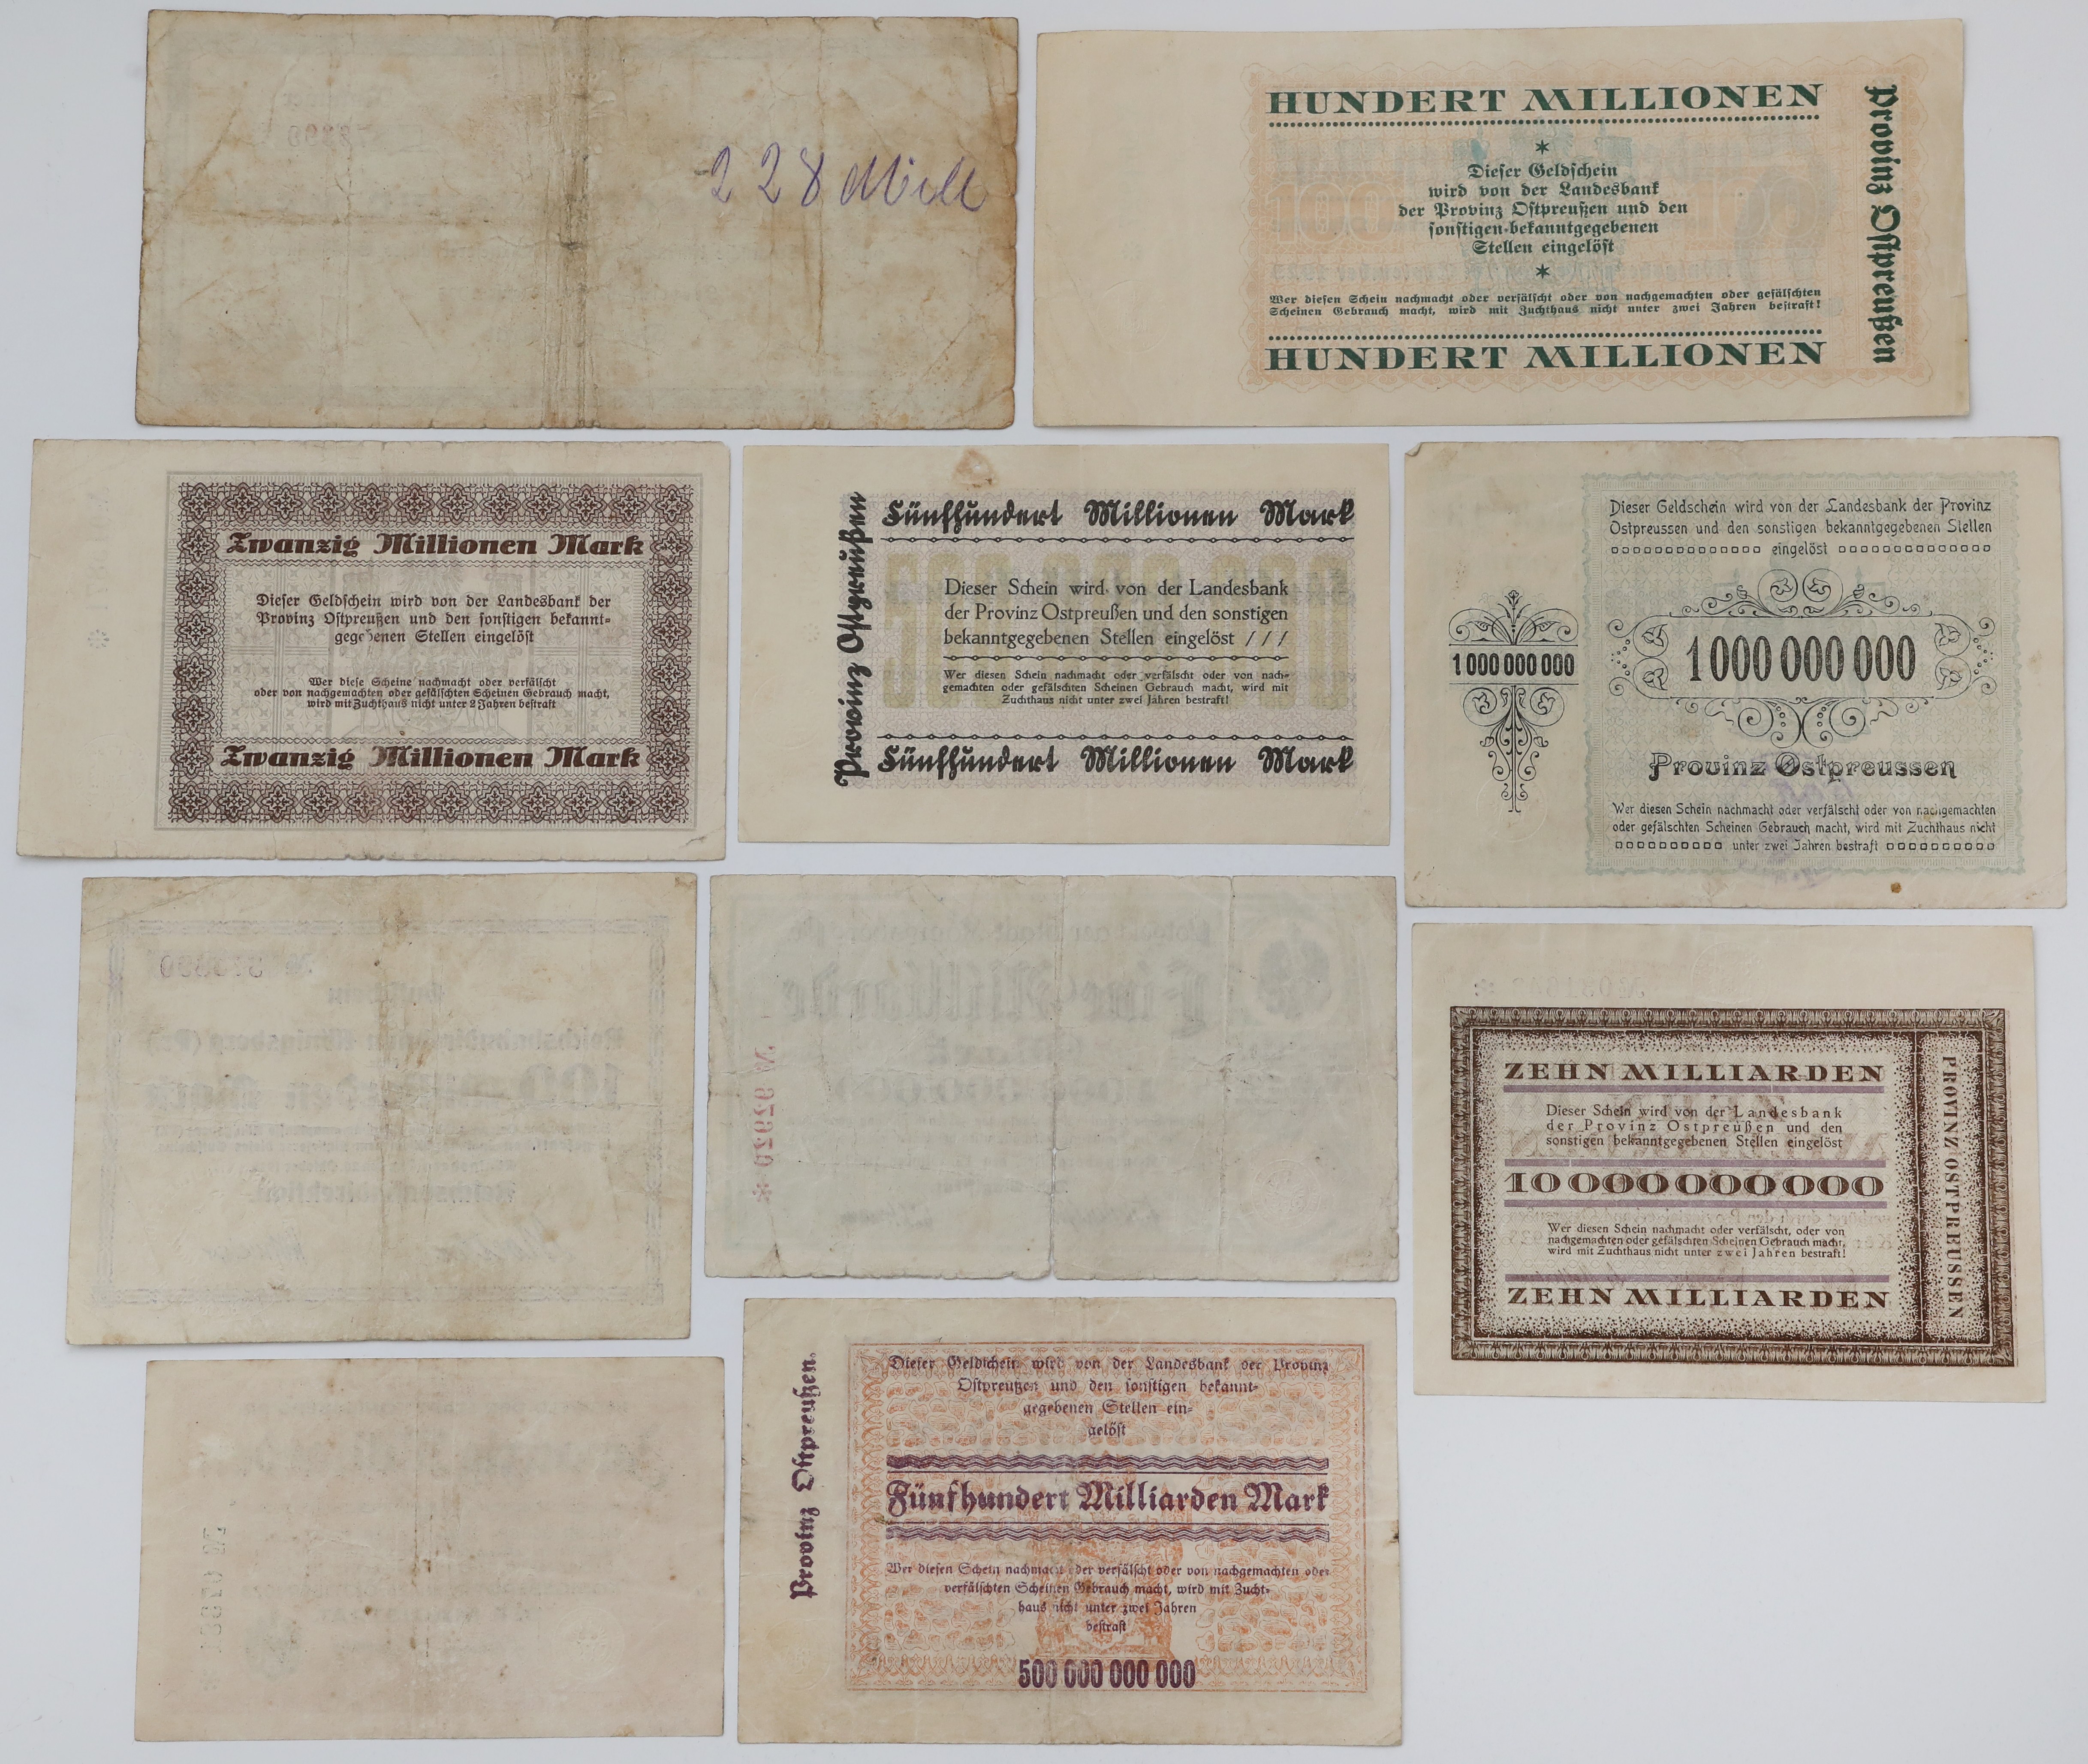 228 Mill
HUNDERT MILLIONEN
Dieser Geldschein
wird von der Landesbank
der Provinz Ostpreußen und den
sonstigen bekanntgegebenen
Stellen eingelöst
Wer diesen Schein nachmacht oder verfälscht oder von nachgemachten oder gefälschten
Scheinen Gebrauch macht, wird mit Zuchthaus nicht unter zwei Jahren bestraft!
HUNDERT MILLIONEN
Provinz Ostpreußen
Zwanzig Millionen Mark
Dieser Geldschein wird von der Landesbank der
Provinz Ostpreußen und den sonstigen bekannt-
gegebenen Stellen eingelöst
Wer diese Scheine nachmacht oder verfälscht
oder von nachgemachten oder gefälschten Scheinen Gebrauch macht,
wird mit Zuchthaus nicht unter 2 Jahren bestraft
Zwanzig Millionen Mark
Provinz Ostpreußen
Fünfhundert Millionen Mark
Dieser Schein wird von der Landesbank
der Provinz Ostpreußen und den sonstigen
bekanntgegebenen Stellen eingelöst ///
Wer diesen Schein nachmacht oder verfälscht oder von nach-
gemachten oder gefälschten Scheinen Gebrauch macht, wird mit
Zuchthaus nicht unter zwei Jahren bestraft!
Fünfhundert Millionen Mark
Dieser Geldschein wird von der Landesbank der Provinz
Ostpreussen und den sonstigen bekanntgegebenen Stellen
eingelöst
1000 000 000
1 000 000 000
Provinz Ostpreussen
Wer diesen Schein nachmacht oder verfälscht oder von nachgemachten
oder gefälschten Scheinen Gebrauch macht, wird mit Zuchthaus nicht
unter zwei Jahren bestraft
ZEHN MILLIARDEN
Dieser Schein wird von der Landesbank
der Provinz Ostpreußen und den
sonstigen bekanntgegebenen Stellen eingelöst
10 000 000 000
Wer diesen Schein nachmacht oder verfälscht, oder von
nachgemachten oder gefälschten Scheinen Gebrauch macht,
wird mit Zuchthaus nicht unter zwei Jahren bestraft!
ZEHN MILLIARDEN
PROVINZ OSTPREUSSEN
Provinz Ostpreußen.
Dieser Geldschein wird von der Landesbank der Provinz
Ostpreußen und den sonstigen bekannt-
gegebenen Stellen ein-
gelöst
Fünfhundert Milliarden Mark
Wer diesen Schein nachmacht oder verfälscht oder von nachgemachten oder
verfälschten Scheinen Gebrauch macht, wird mit Zucht-
haus nicht unter zwei Jahren
bestraft
500 000 000 000